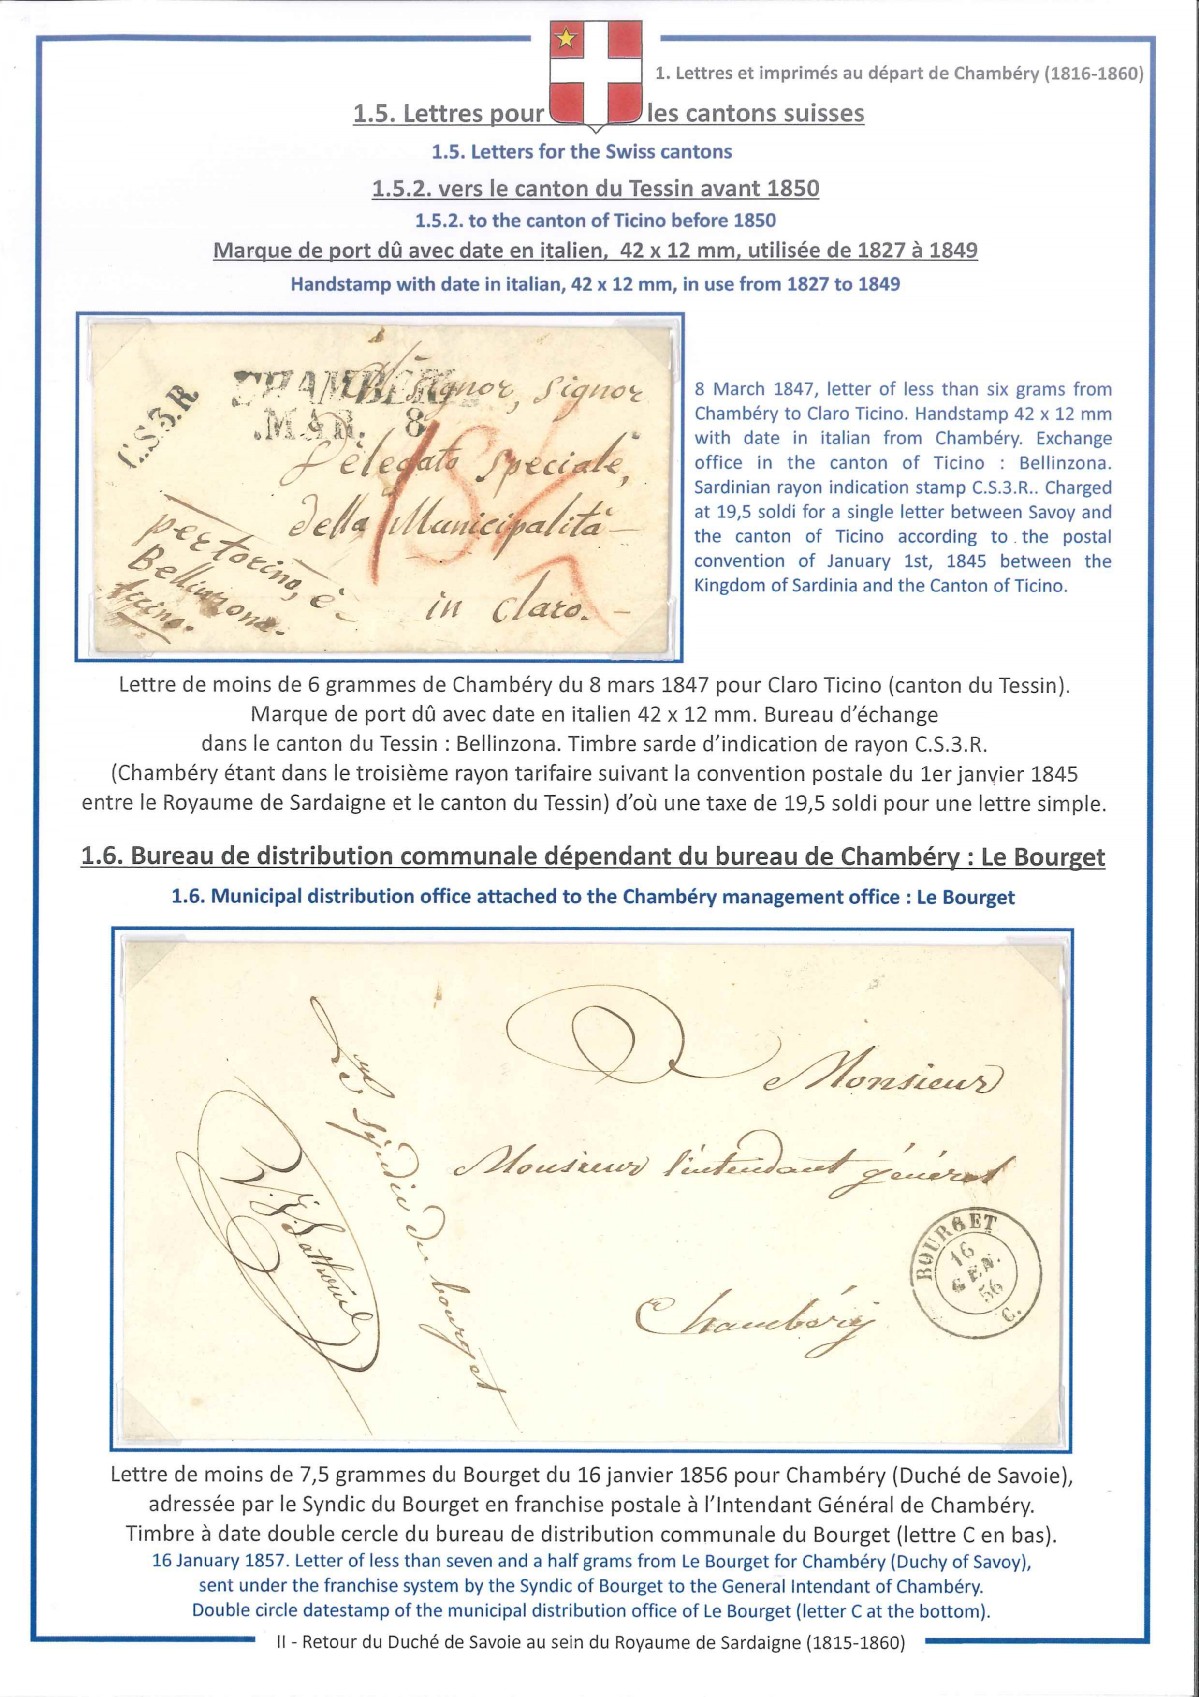 1. Lettres et imprimés au départ de Chambéry (1816-1860)
1.5. Lettres pour les cantons suisses
1.5. Letters for the Swiss cantons
1.5.2. vers le canton du Tessin avant 1850
1.5.2. to the canton of Ticino before 1850
Marque de port dû avec date en italien, 42 x 12 mm, utilisée de 1827 à 1849
Handstamp with date in italian, 42 x 12 mm, in use from 1827 to 1849
C.S.3.R
CHAMBERY
.MAR. 8
Signor, Signor
Delegato Speciale,
della Municipalità
in Claro.-
per torino, è
Bellinzona.
ticino.
8 March 1847, letter of less than six grams from
Chambéry to Claro Ticino. Handstamp 42 x 12 mm
with date in italian from Chambéry. Exchange
office in the canton of Ticino : Bellinzona.
Sardinian rayon indication stamp C.S.3.R.. Charged
at 19,5 soldi for a single letter between Savoy and
the canton of Ticino according to the postal
convention of January 1st, 1845 between the
Kingdom of Sardinia and the Canton of Ticino.
Lettre de moins de 6 grammes de Chambéry du 8 mars 1847 pour Claro Ticino (canton du Tessin).
Marque de port dû avec date en italien 42 x 12 mm. Bureau d'échange
dans le canton du Tessin : Bellinzona. Timbre sarde d'indication de rayon C.S.3.R.
(Chambéry étant dans le troisième rayon tarifaire suivant la convention postale du 1er janvier 1845
entre le Royaume de Sardaigne et le canton du Tessin) d'où une taxe de 19,5 soldi pour une lettre simple.
1.6. Bureau de distribution communale dépendant du bureau de Chambéry : Le Bourget
1.6. Municipal distribution office attached to the Chambéry management office : Le Bourget
Monsieur
Monsieur l'intendant général
Chambéry
Le Syndic du bourget
BOURGET
16
GEN.
56
C.
Lettre de moins de 7,5 grammes du Bourget du 16 janvier 1856 pour Chambéry (Duché de Savoie),
adressée par le Syndic du Bourget en franchise postale à l'Intendant Général de Chambéry.
Timbre à date double cercle du bureau de distribution communale du Bourget (lettre C en bas).
16 January 1857. Letter of less than seven and a half grams from Le Bourget for Chambéry (Duchy of Savoy),
sent under the franchise system by the Syndic of Bourget to the General Intendant of Chambéry.
Double circle datestamp of the municipal distribution office of Le Bourget (letter C at the bottom).
II - Retour du Duché de Savoie au sein du Royaume de Sardaigne (1815-1860)